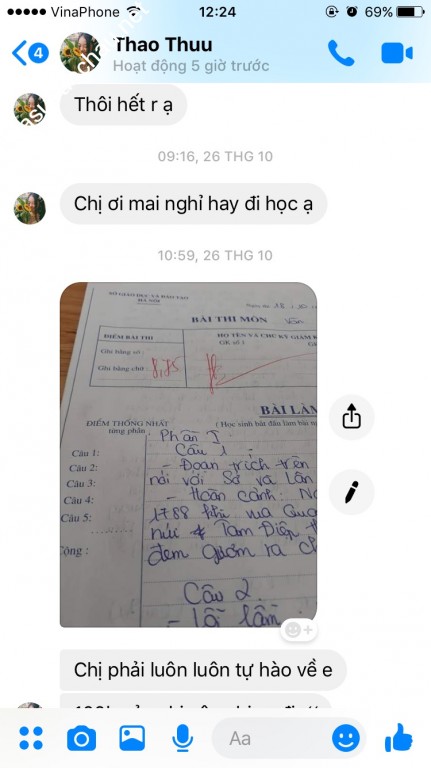 VinaPhone 12:24 69%
4 Thao Thuu
Hoạt động 5 giờ trước
Thôi hết r ạ
09:16, 26 THG 10
Chị ơi mai nghỉ hay đi học ạ
10:59, 26 THG 10
SỞ GIÁO DỤC VÀ ĐÀO TẠO
HÀ NỘI
BÀI THI MÔN Văn
ĐIỂM BÀI THI
HỌ TÊN VÀ CHỮ KÝ GIÁM K
Ghi bằng số:
GK số 1
Ghi bằng chữ: 8,75
BÀI LÀM
ĐIỂM THỐNG NHẤT
từng phần
(Học sinh bắt đầu làm bài
Phần I
Câu 1:
Câu 1
Câu 2:
- Đoạn trích trên
Câu 3:
nói với Sở và Lân
Câu 4:
- Hoàn cảnh:
Câu 5:
1788 khi vua Qua
núi Tam Điệp
Cộng:
đem gươm ra
Câu 2.
- là lầm
Chị phải luôn luôn tự hào về e
Aa